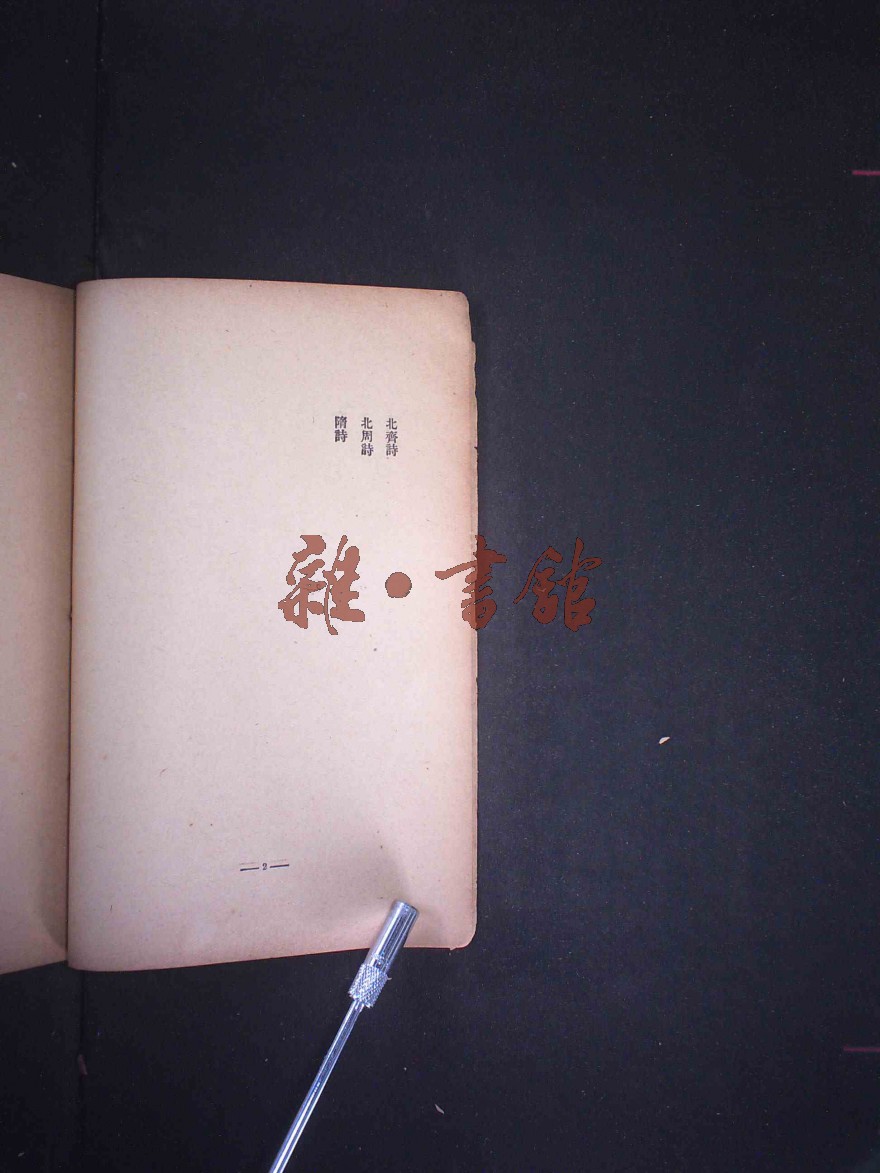 北齊詩
北周詩
隋詩
雜·書館
— 2 —